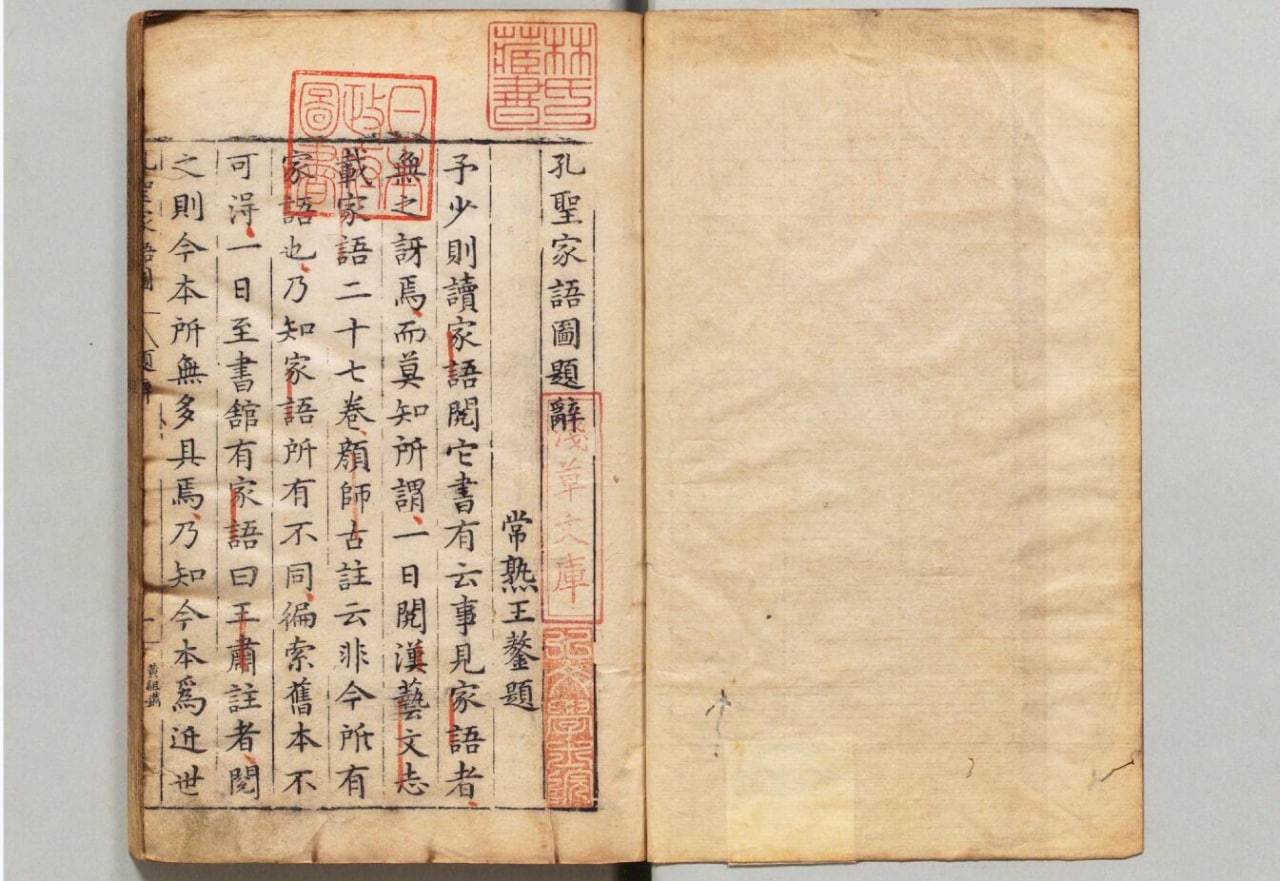 孔聖家語圖題辭
常熟王鏊題
予少則讀家語閱它書有云事見家語者
無之訝焉而莫知所謂一日閱漢藝文志
載家語二十七卷顏師古註云非今所有
家語也乃知家語所有不同徧索舊本不
可淂一日至書舘有家語曰王肅註者閱
之則今本所無多具焉乃知今本爲近世
孔聖家語圖
題辭
一
黃組鐫
林氏藏書
日本政府圖書
淺草文庫